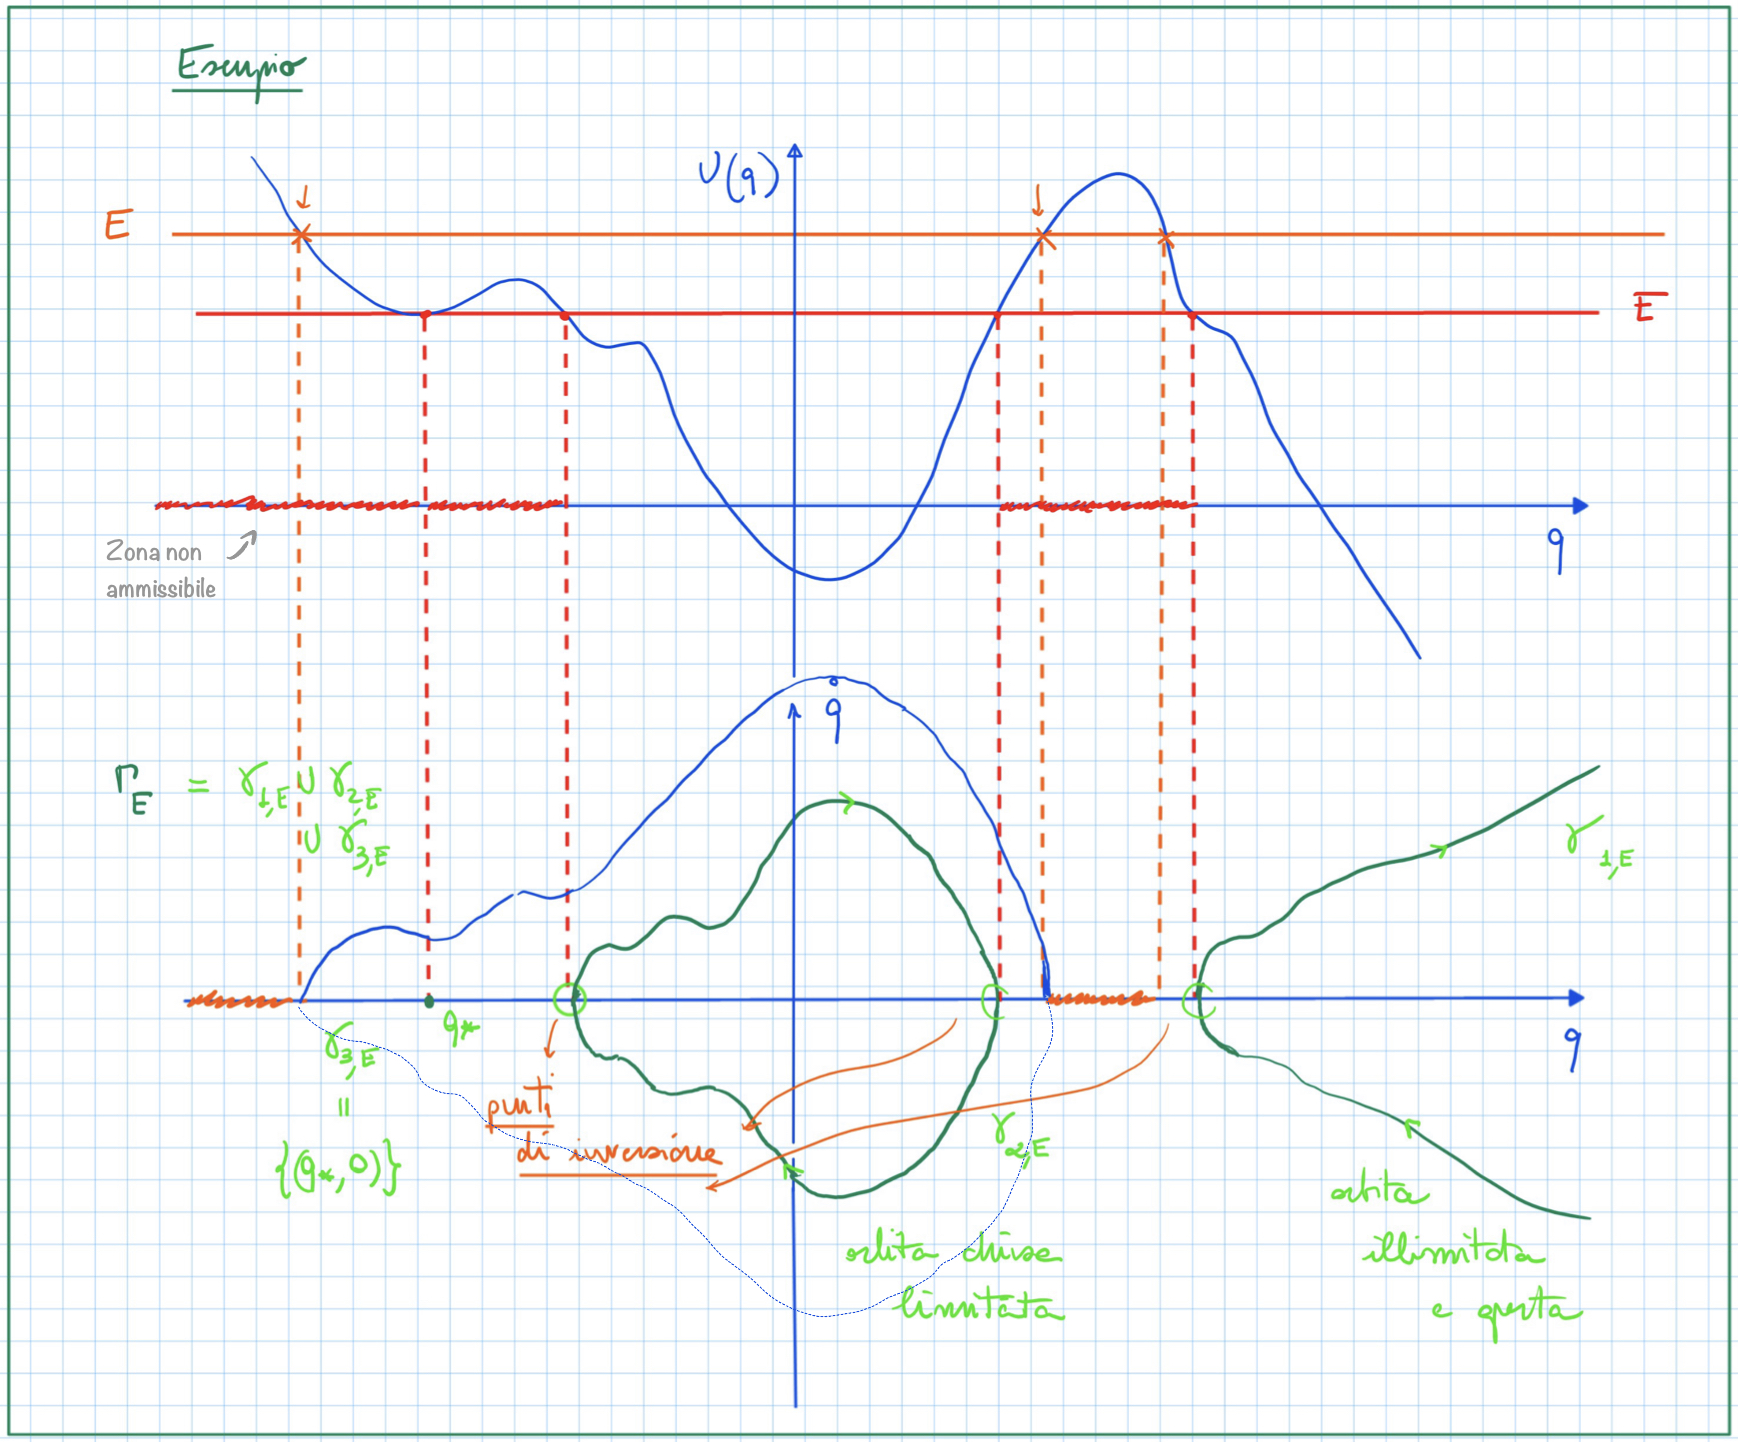 Esempio
U(q)
E
E̅
q
Zona non
ammissibile
q̇
Γ_E = γ_{1,E} ∪ γ_{2,E}
∪ γ_{3,E}
γ_{1,E}
q*
q
γ_{3,E}
=
{(q*, 0)}
punti
di inversione
γ_{2,E}
orbita chiusa
limitata
orbita
illimitata
e aperta